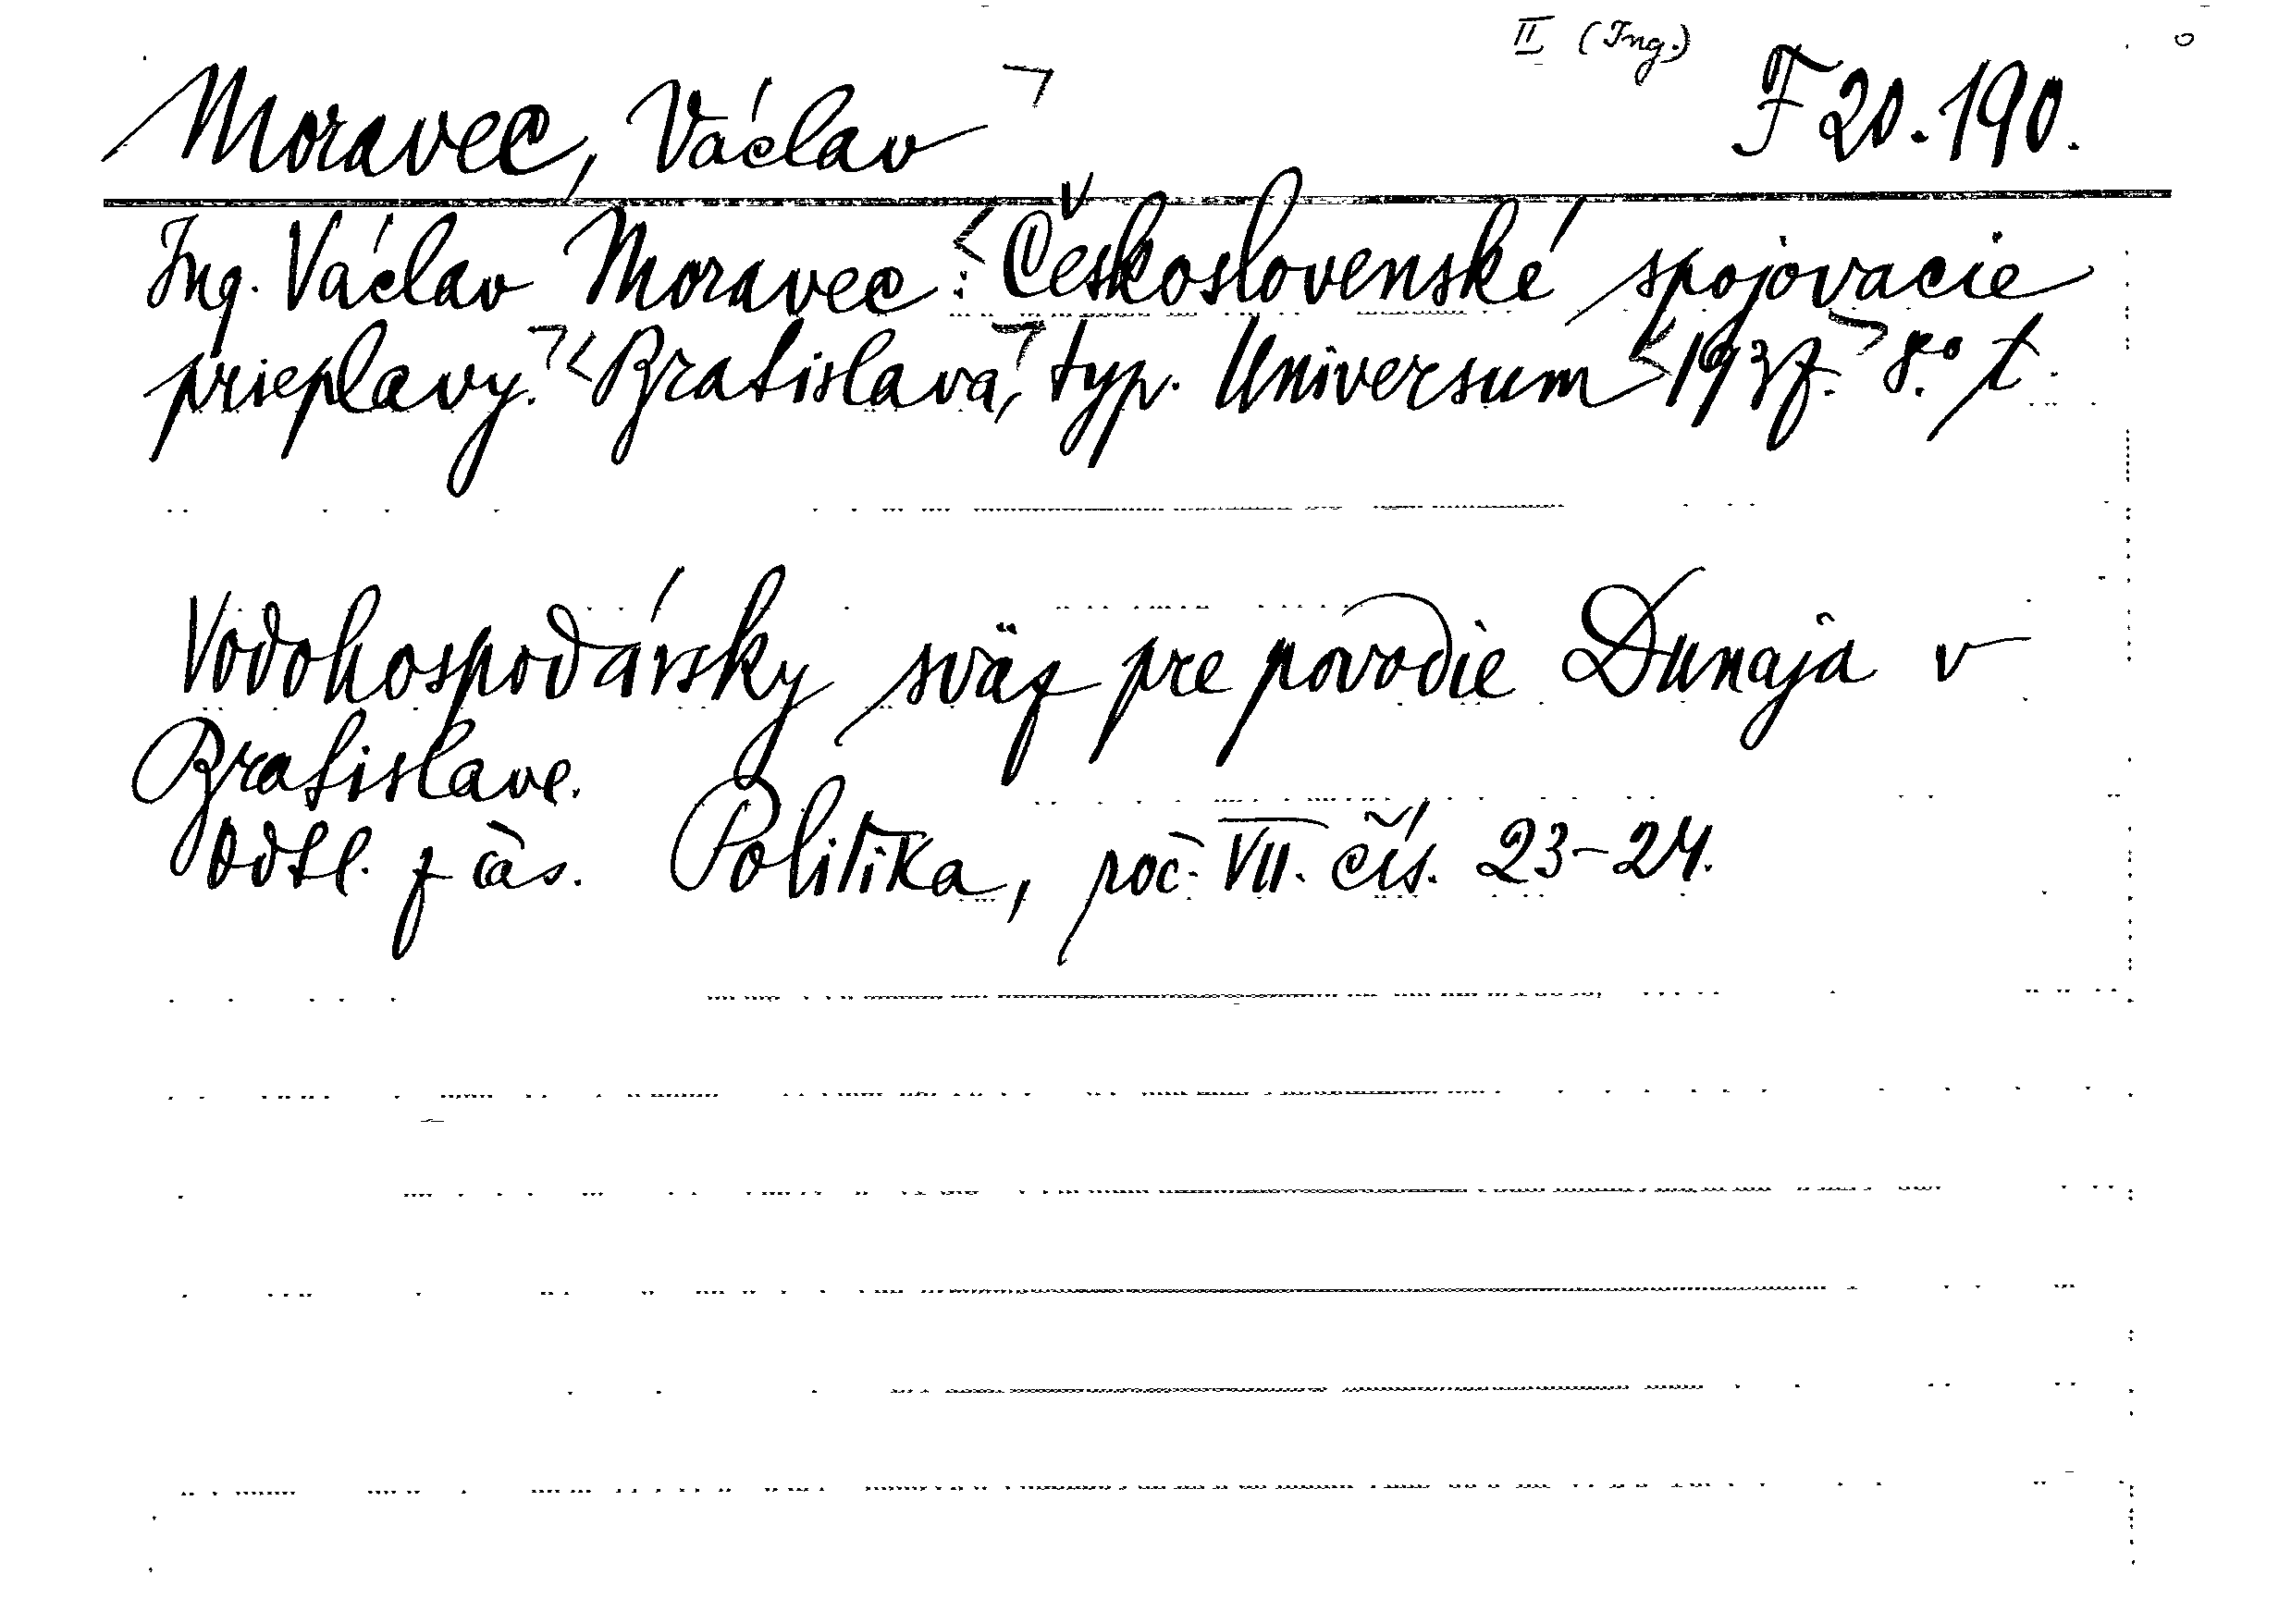 II (Ing.)
Moravec, Václav ¬ F 20.190.
Ing. Václav Moravec: <Československé spojovacie
prieplavy.¬ <Bratislava,¬ typ. Universum <1937.¬ 8.° t.
Vodohospodársky sväz pre povodie Dunaja v
Bratislave.
Odtl. z čas. Politika, roč. VII. čís. 23-24.